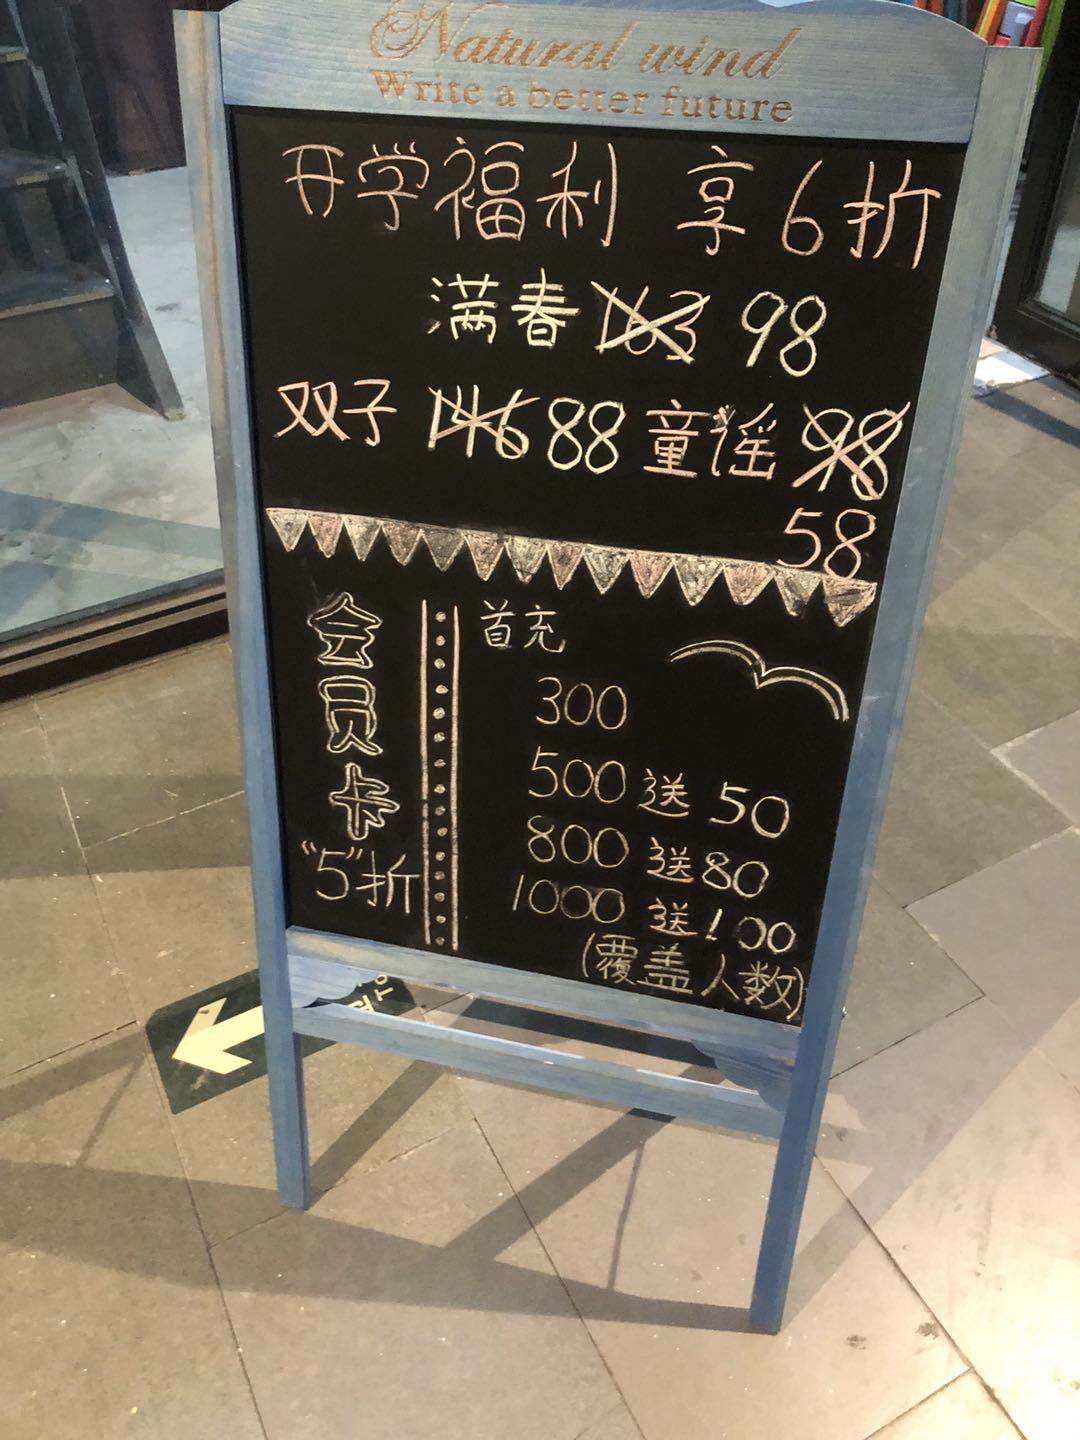 Natural wind
Write a better future
开学福利 享6折
满春 163 98
双子 146 88 童谣 98
58
会员卡
"5"折
首充
300
500 送 50
800 送 80
1000 送 100
(覆盖人数)